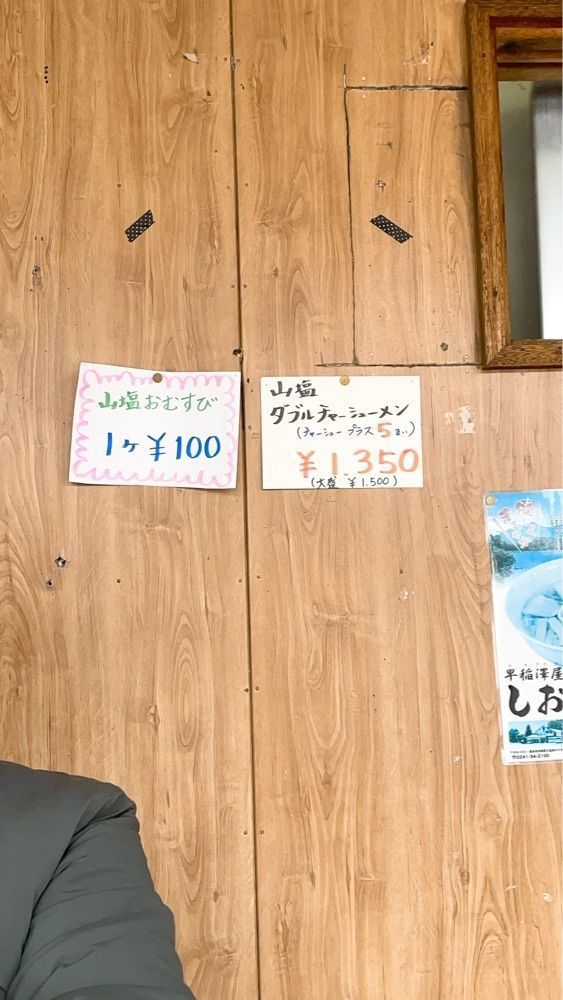 山塩おむすび
1ヶ ¥100
山塩
ダブルチャーシューメン
(チャーシュー プラス 5まい)
¥1.350
(大盛 ¥1.500)
早稲澤屋
しお
☎0241-34-2100